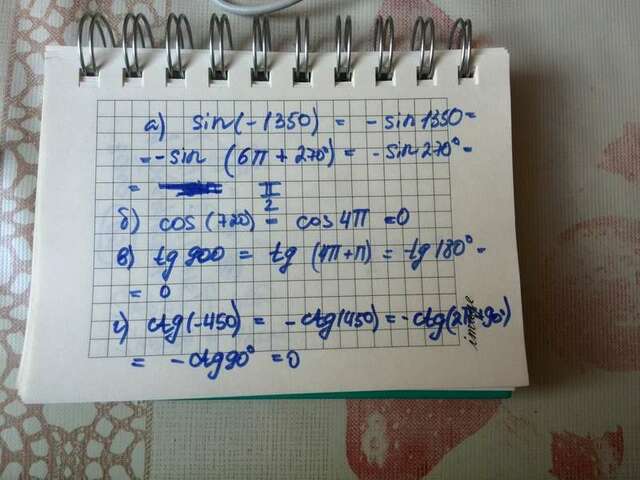 а) sin(-1350) = -sin1350=
=-sin (6π+270°)= -sin270°=
= π/2
б) cos(720)= cos4π=0
в) tg900 = tg (4π+π)=tg180°=
= 0
г) ctg(-450)= -ctg(450)=-ctg(2π+90°)
= -ctg90° =0
image